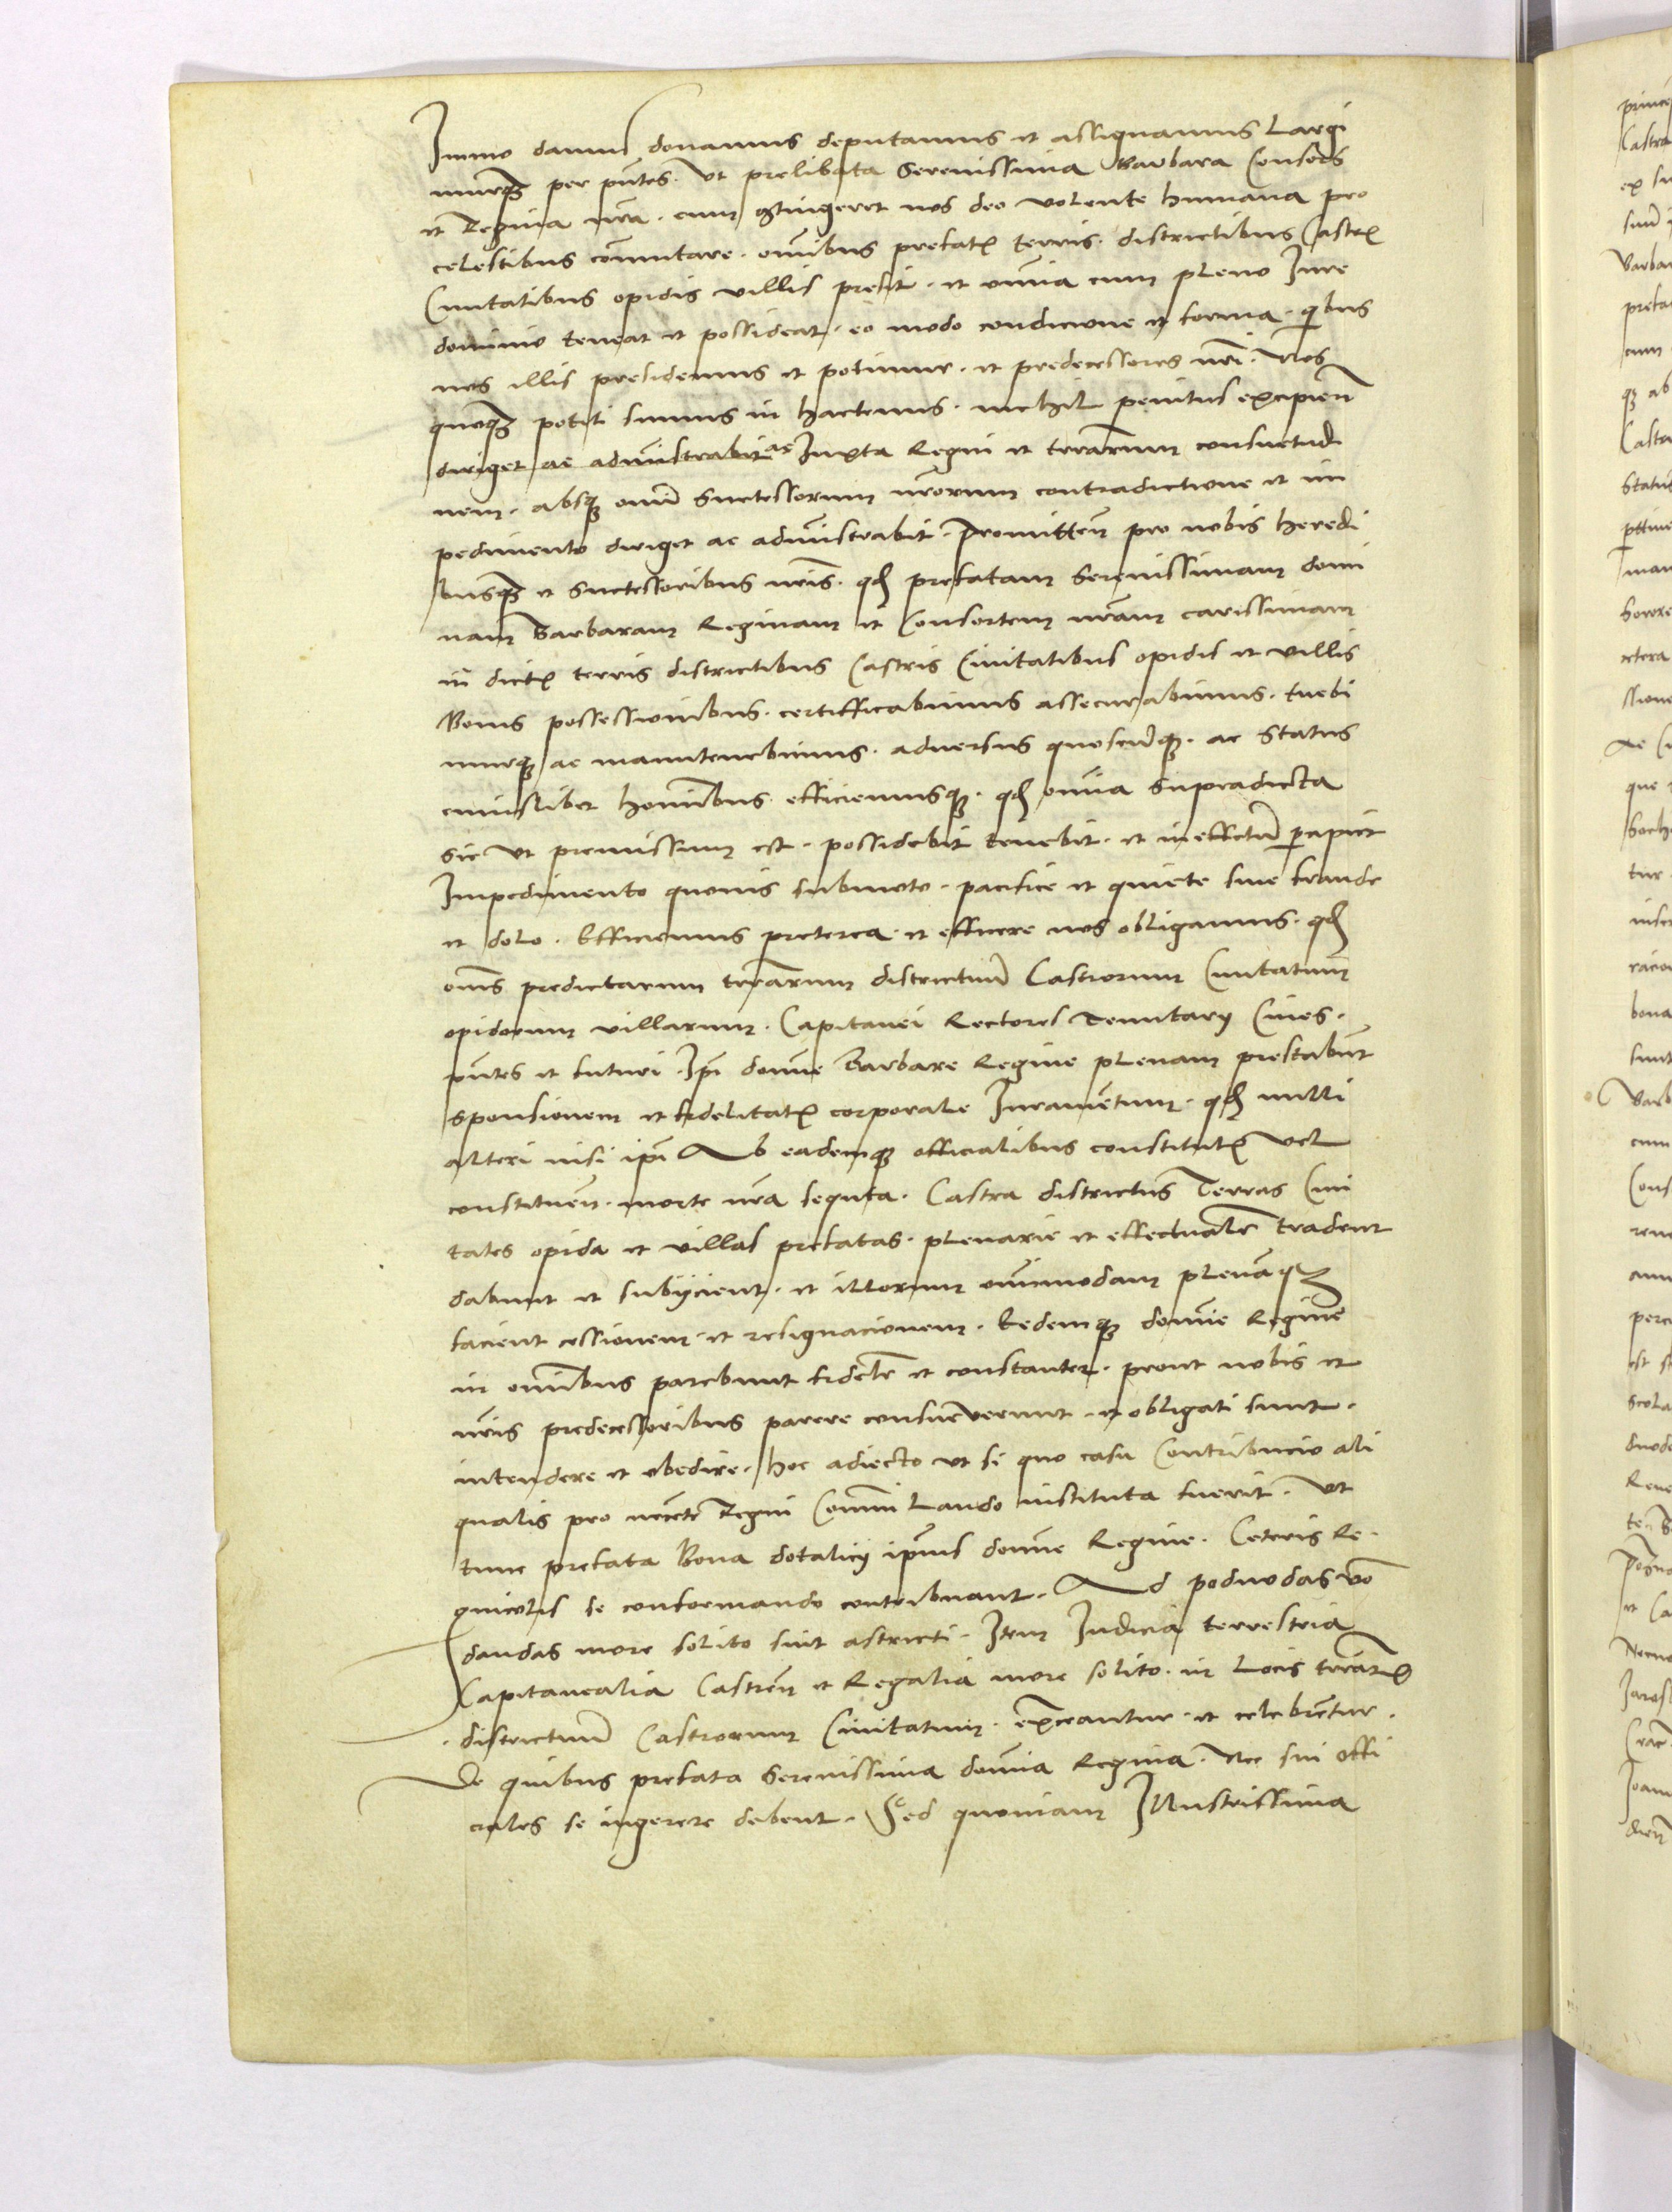 Immo damus donamus deputamus et assignamus Largi
murqꝫ per pñtes. Ut prelibata Serenissima Barbara Consors
et Regina nr̃a. cum ꝯtingeret nos deo volente humana pro
celestibus com̃utare. om̃ibus prefatꝭ terris. districtibus Castrꝭ
Ciuitatibus opidis villis presit. et om̃ia cum pleno Iure
dominio teneat et possideat. eo modo condicione et forma. qͥbus
nos illis presidemus et potimur. et predecessores nr̃i. Nos
quoqꝫ potiti sumus in hactenus. nichil penitus excipien̄
diriget ac admĩstrabit ac Iuxta Regni et terrarum consuetudi
nem. absqꝫ om̃i Successorum nr̃orum contradictione et im
pedimento diriget ac admĩstrabit. Promitten̄ pro nobis heredi
busqꝫ et Successoribus nr̃is. qꝺ prefatam Serenissimam domi
nam Barbaram Reginam et Consortem nr̃am carissimam
in dictꝭ terris districtibus Castris Ciuitatibus opidis et villis
Bonis possessionibus. certifficabimus assecurabimus. tuebi
murqꝫ ac manutenebimus. aduersus quoscũqꝫ. ac Status
cuiuslibet hominibus. efficiemusqꝫ. qꝺ om̃ia supradicta
sic ut premissum est. possidebit tenebit. et in effectũ ꝑcipiet
Impedimento quouis submoto. pacifice et quiete sine fraude
et dolo. Efficiemus preterea. et efficere nos obligamus. qꝺ
om̃s predictarum terrarum districtuũ Castrorum Ciuitatum
opidorum villarum. Capitanei Rectores Tenutarij Ciues.
pñtes et futuri. Ip̃i domĩe Barbare Regine plenam prestabũt
sponsionem et fidelitatꝭ corporale Iuramẽtum. qꝺ nulli
alteri nisi ip̃i Ab eademqꝫ officialibus constitutꝭ vel
constituen̄. morte nr̃a sequta. Castra districtus Terras Ciui
tates opida et villas prefatas. plenarie et effectualẽ tradent
dabunt et subijcient. et illorum om̃imodam plenãqꝫ
facient cessionem. et resignacionem. Eedemqꝫ domĩe Regine
in om̃ibus parebunt fidelẽ et constanter. prout nobis et
nr̃is predecessoribus parere consueuerunt. et obligati sunt.
intendere et obedire. hoc adiecto ut si quo casu Contribucio ali
qualis pro necẽte Regni Com̃uni Laudo instituta fuerit. Ut
tunc prefata Bona dotalicij ip̃ius domĩe Regine. Ceteris Re-
gnicolis se conformando contribuant. Ad poduodas vo
dandas more solito sint astricti. Item Iudicia terrestria
Capitanealia Castren̄ et Regalia more solito. in Locis terrarꝝ
districtuũ Castrorum Ciuitatum. exerceantur. et celebrẽtur.
De quibus prefata Serenissima domĩa Regina. Nec sui offi
ciales se ingerere debent. Sed quoniam Illustrissima